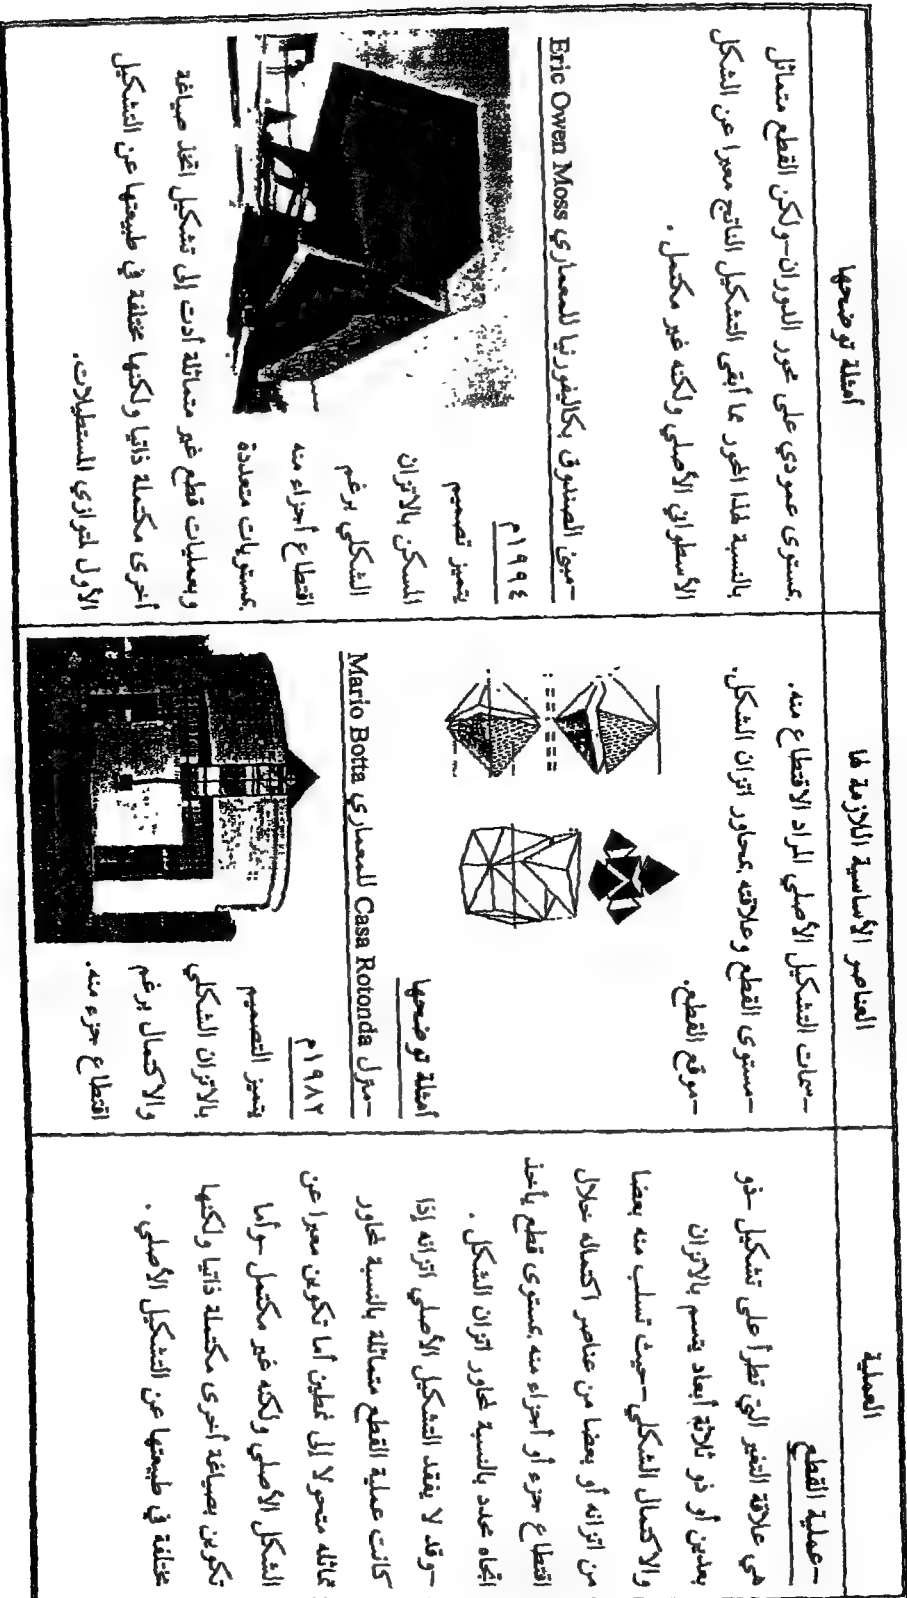 العملية
العناصر الأساسية اللازمة لها
أمثلة توضحها
-عملية القطع
هي علاقة التغير التي تطرأ على تشكيل -ذو
بعدين أو ذو ثلاثة أبعاد يتسم بالاتزان
والاكتمال الشكلي- حيث تسلب منه بعضا
من اتزانه أو بعضا من عناصر اكتماله خلال
اقتطاع جزء أو أجزاء منه بمستوى قطع يأخذ
اتجاه محدد بالنسبة لمحاور اتزان الشكل .
-وقد لا يفقد التشكيل الأصلي اتزانه إذا
كانت عملية القطع متماثلة بالنسبة لمحاور
تماثله متحولا إلى نمطين أما تكوين معبرا عن
الشكل الأصلي ولكنه غير مكتمل -وأما
تكوين بصياغة أخرى مكتملة ذاتيا ولكنها
مختلفة في طبيعتها عن التشكيل الأصلي .
-سمات التشكيل الأصلي المراد الاقتطاع منه.
-مستوى القطع وعلاقته بمحاور اتزان الشكل.
-موقع القطع.
أمثلة توضحها
-منزل Casa Rotonda للمعماري Mario Botta
١٩٨٢م
يتميز التصميم
بالاتزان الشكلي
والاكتمال برغم
اقتطاع جزء منه.
بمستوى عمودي على محور الدوران-ولكن القطع متماثل
بالنسبة لهذا المحور مما أبقى التشكيل الناتج معبرا عن الشكل
الأسطواني الأصلي ولكنه غير مكتمل .
-مبنى الصندوق بكاليفورنيا للمعماري Eric Owen Moss
١٩٩٤م
يتميز تصميم
المسكن بالاتزان
الشكلي برغم
اقتطاع أجزاء منه
بمستويات متعددة
وبعمليات قطع غير متماثلة أدت إلى تشكيل اتخذ صياغة
أخرى مكتملة ذاتيا ولكنها مختلفة في طبيعتها عن التشكيل
الأول لمتوازي المستطيلات.